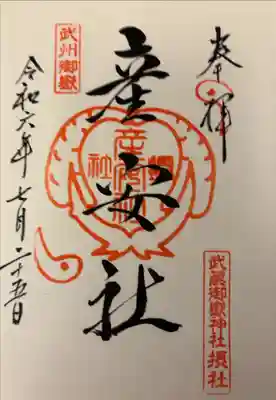 奉拝
武州御嶽
産安社
令和六年七月二十五日
武蔵御嶽神社摂社